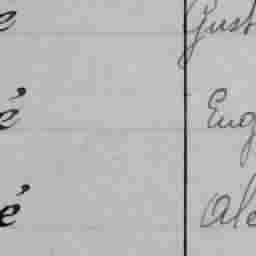 e Gust
é Eug
é Ale